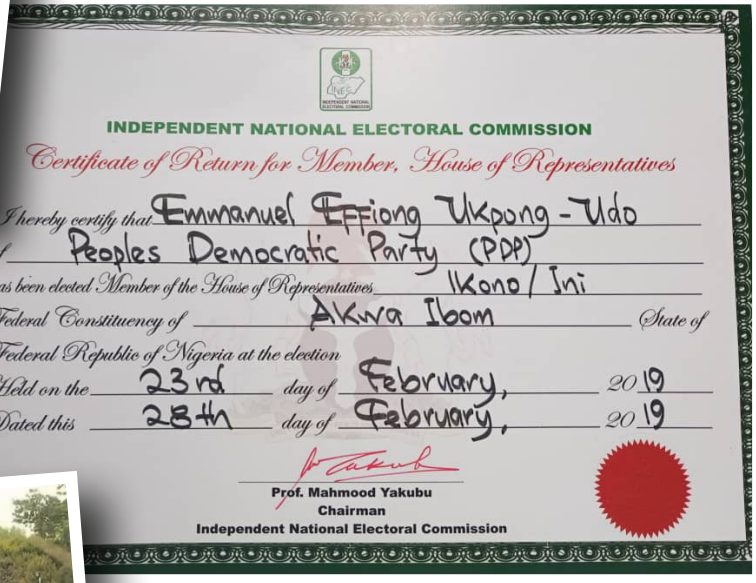 INEC
INDEPENDENT NATIONAL
ELECTORAL COMMISSION
INDEPENDENT NATIONAL ELECTORAL COMMISSION
Certificate of Return for Member, House of Representatives
I hereby certify that Emmanuel Effiong Ukpong-Udo
Peoples Democratic Party (PDP)
as been elected Member of the House of Representatives Ikono/Ini
Federal Constituency of Akwa Ibom State of
Federal Republic of Nigeria at the election
Held on the 23rd day of February, 2019
Dated this 28th day of February, 2019
Prof. Mahmood Yakubu
Chairman
Independent National Electoral Commission